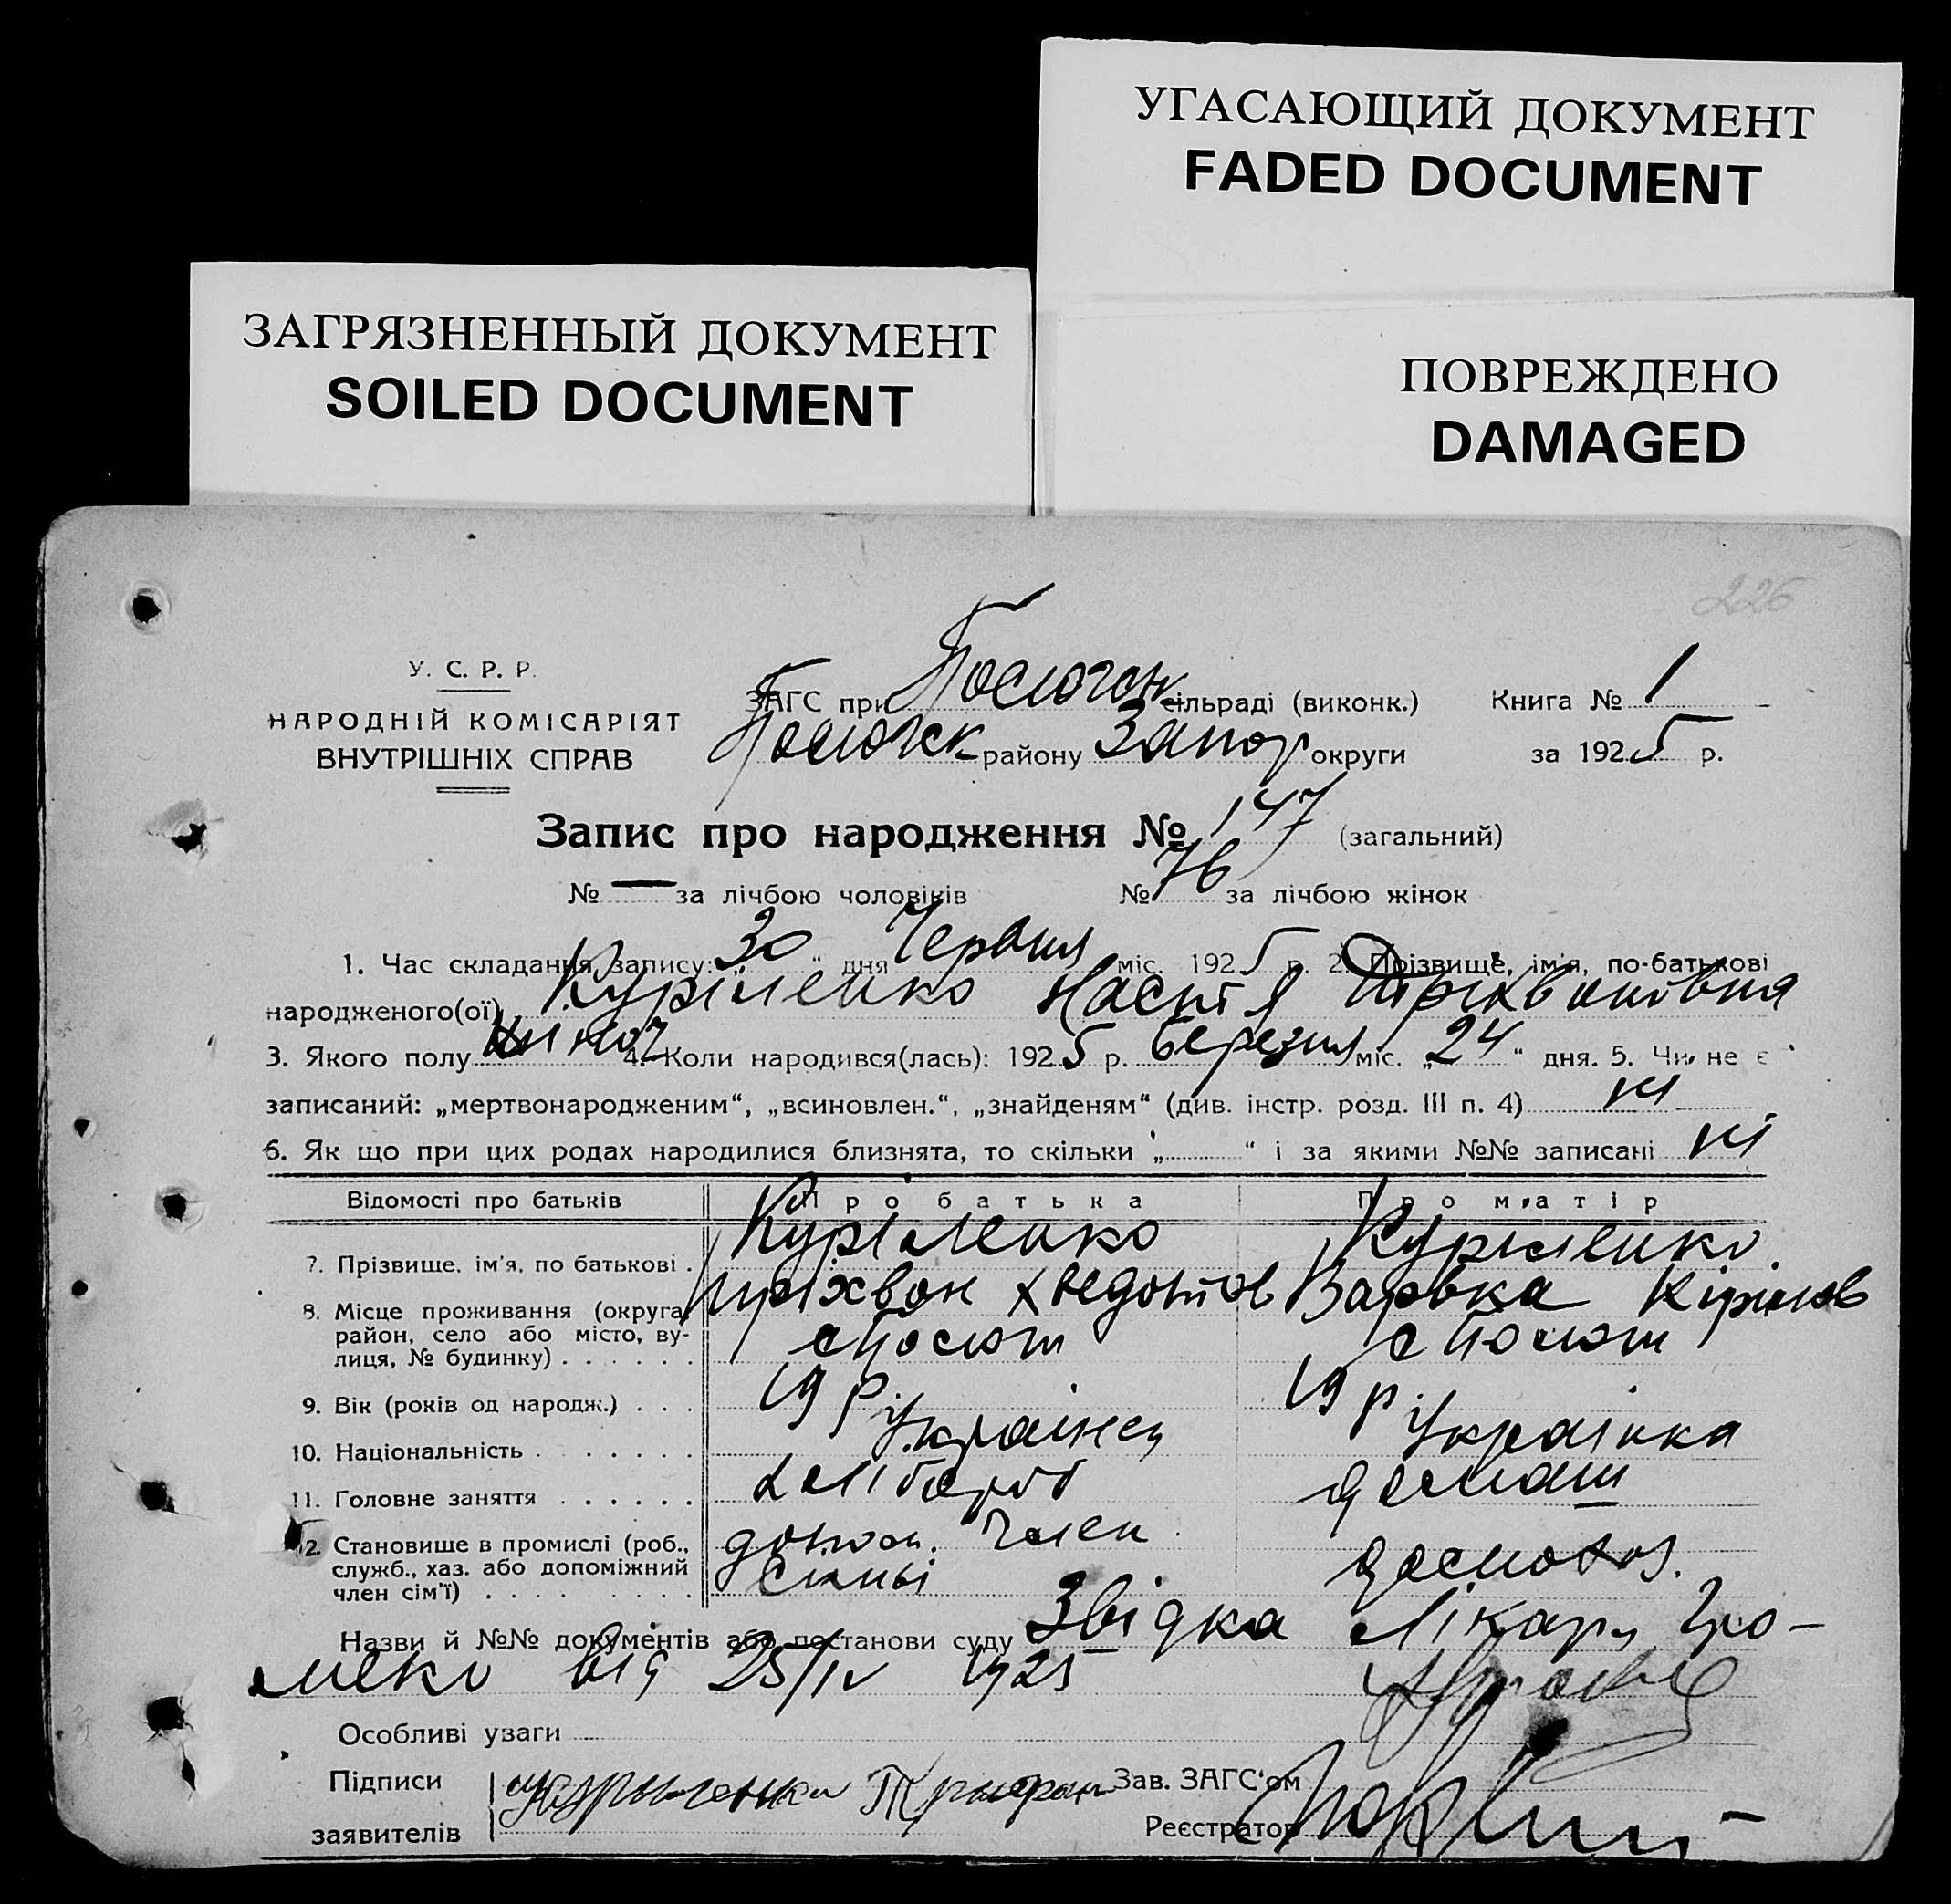 УГАСАЮЩИЙ ДОКУМЕНТ
FADED DOCUMENT
ЗАГРЯЗНЕННЫЙ ДОКУМЕНТ
SOILED DOCUMENT
ПОВРЕЖДЕНО
DAMAGED
226
У. С. Р. Р.
НАРОДНІЙ КОМІСАРІЯТ
ВНУТРІШНІХ СПРАВ
ЗАГС при сільраді (виконк.) Книга № 1
району Запор округи за 1925 р.
Запис про народження № 147 (загальний)
№ — за лічбою чоловіків № 76 за лічбою жінок
1. Час складання запису: „30“ дня Червня міс. 1925 р. 2. Прізвище, ім'я, по-батькові
народженого(ої) Куріленко Настя Тріхвонівна
3. Якого полу жіноч 4. Коли народився(лась): 1925 р. березня міс. „24“ дня. 5. Чи не є
записаний: „мертвонародженим“, „всиновлен.“, „знайденям“ (див. інстр. розд. III п. 4) ні
6. Як що при цих родах народилися близнята, то скільки „ “ і за якими №№ записані ні
Відомості про батьків Про батька Про матір
7. Прізвище, ім'я, по батькові . Куріленко Куріленко
Тріхвон Хведотов Варвка Кірілов
8. Місце проживання (округа,
район, село або місто, ву-
лиця, № будинку) . . . . . .
9. Вік (років од народж.) . . . 19 р. 19 р.
10. Національність . . . . . . Українец Українка
11. Головне заняття . . . . . . хлібороб домаш
12. Становище в промислі (роб., допом. член
служб., хаз. або допоміжний сімьі
член сім'ї) . . . . . . .
Назви й №№ документів або постанови суду Звідка Лікаря Гро-
меко від 25/IV 1925
Особливі уваги
Підписи Трифон Зав. ЗАГС'ом
заявителів Реєстратор